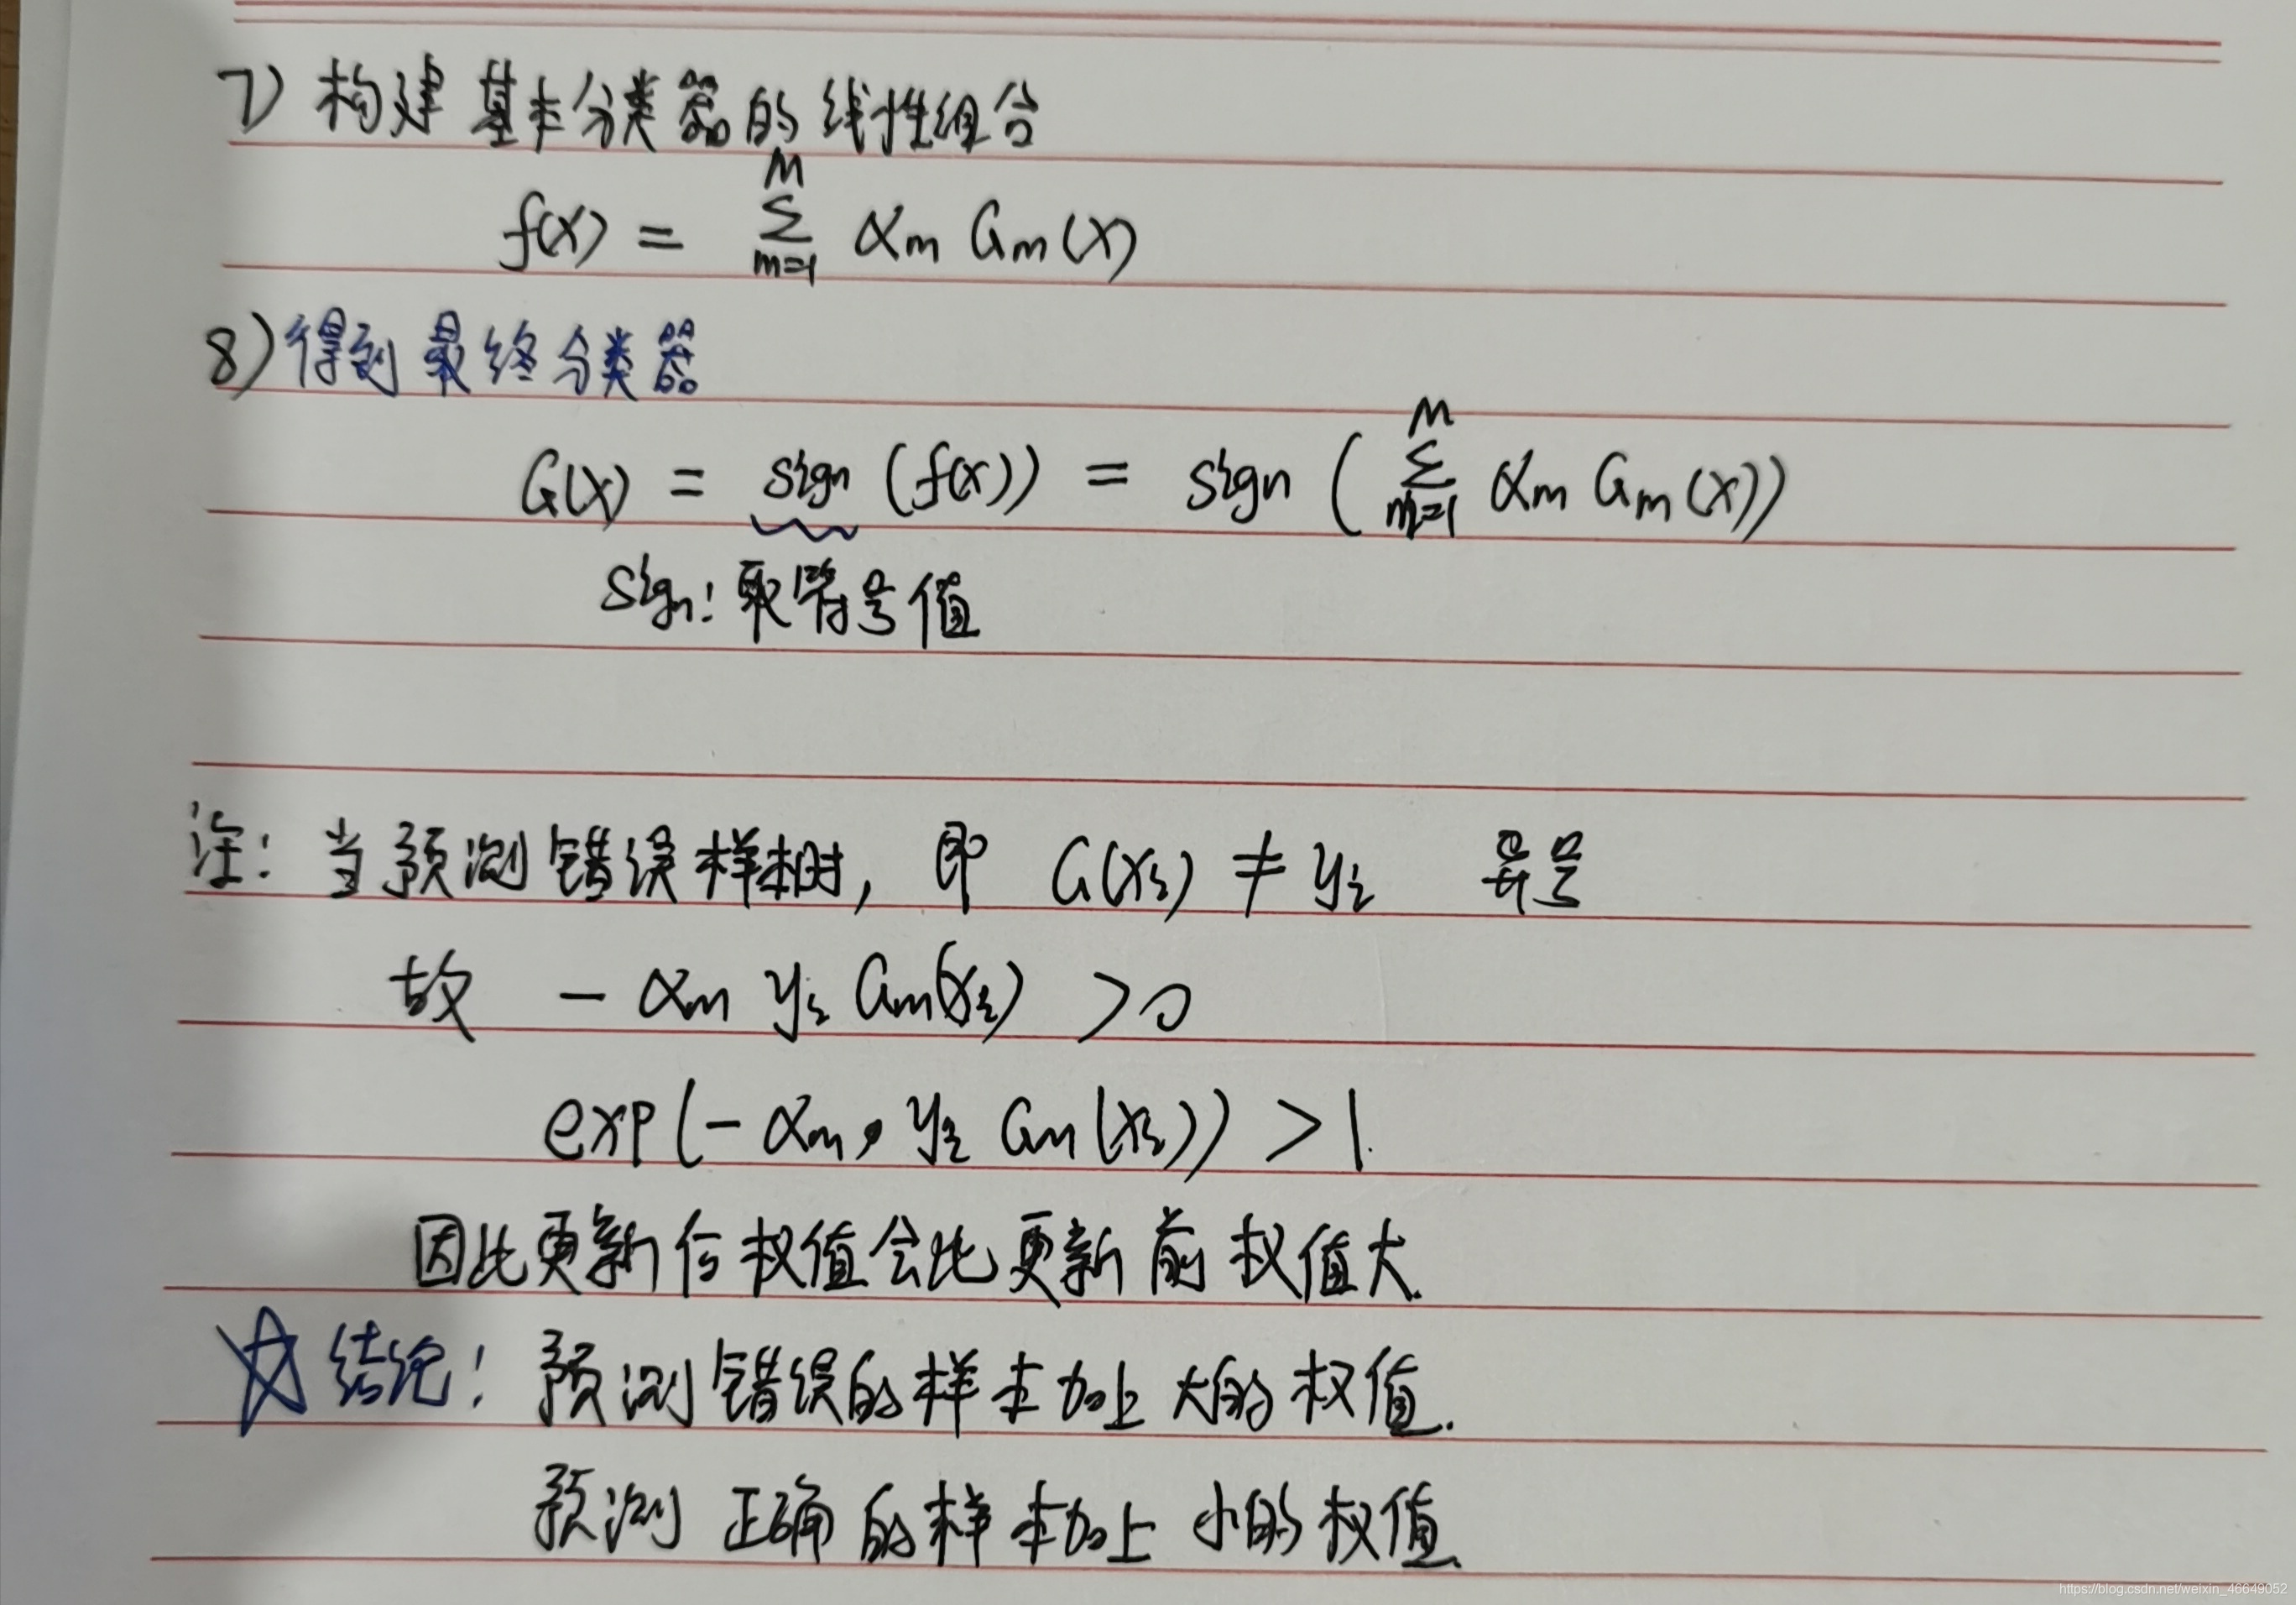 7) 构建基本分类器的线性组合
f(x) = \sum_{m=1}^{M} α_m G_m(x)
8) 得到最终分类器
G(x) = sign (f(x)) = sign ( \sum_{m=1}^{M} α_m G_m(x))
sign: 取符号值
注: 当预测错误样本时, 即 G(x_i) ≠ y_i 异号
故 - α_m y_i G_m(x_i) >0
exp(- α_m y_i G_m(x_i)) >1.
因此更新后权值会比更新前权值大.
☆结论: 预测错误的样本加上大的权值.
预测正确的样本加上小的权值.
https://blog.csdn.net/weixin_46649052